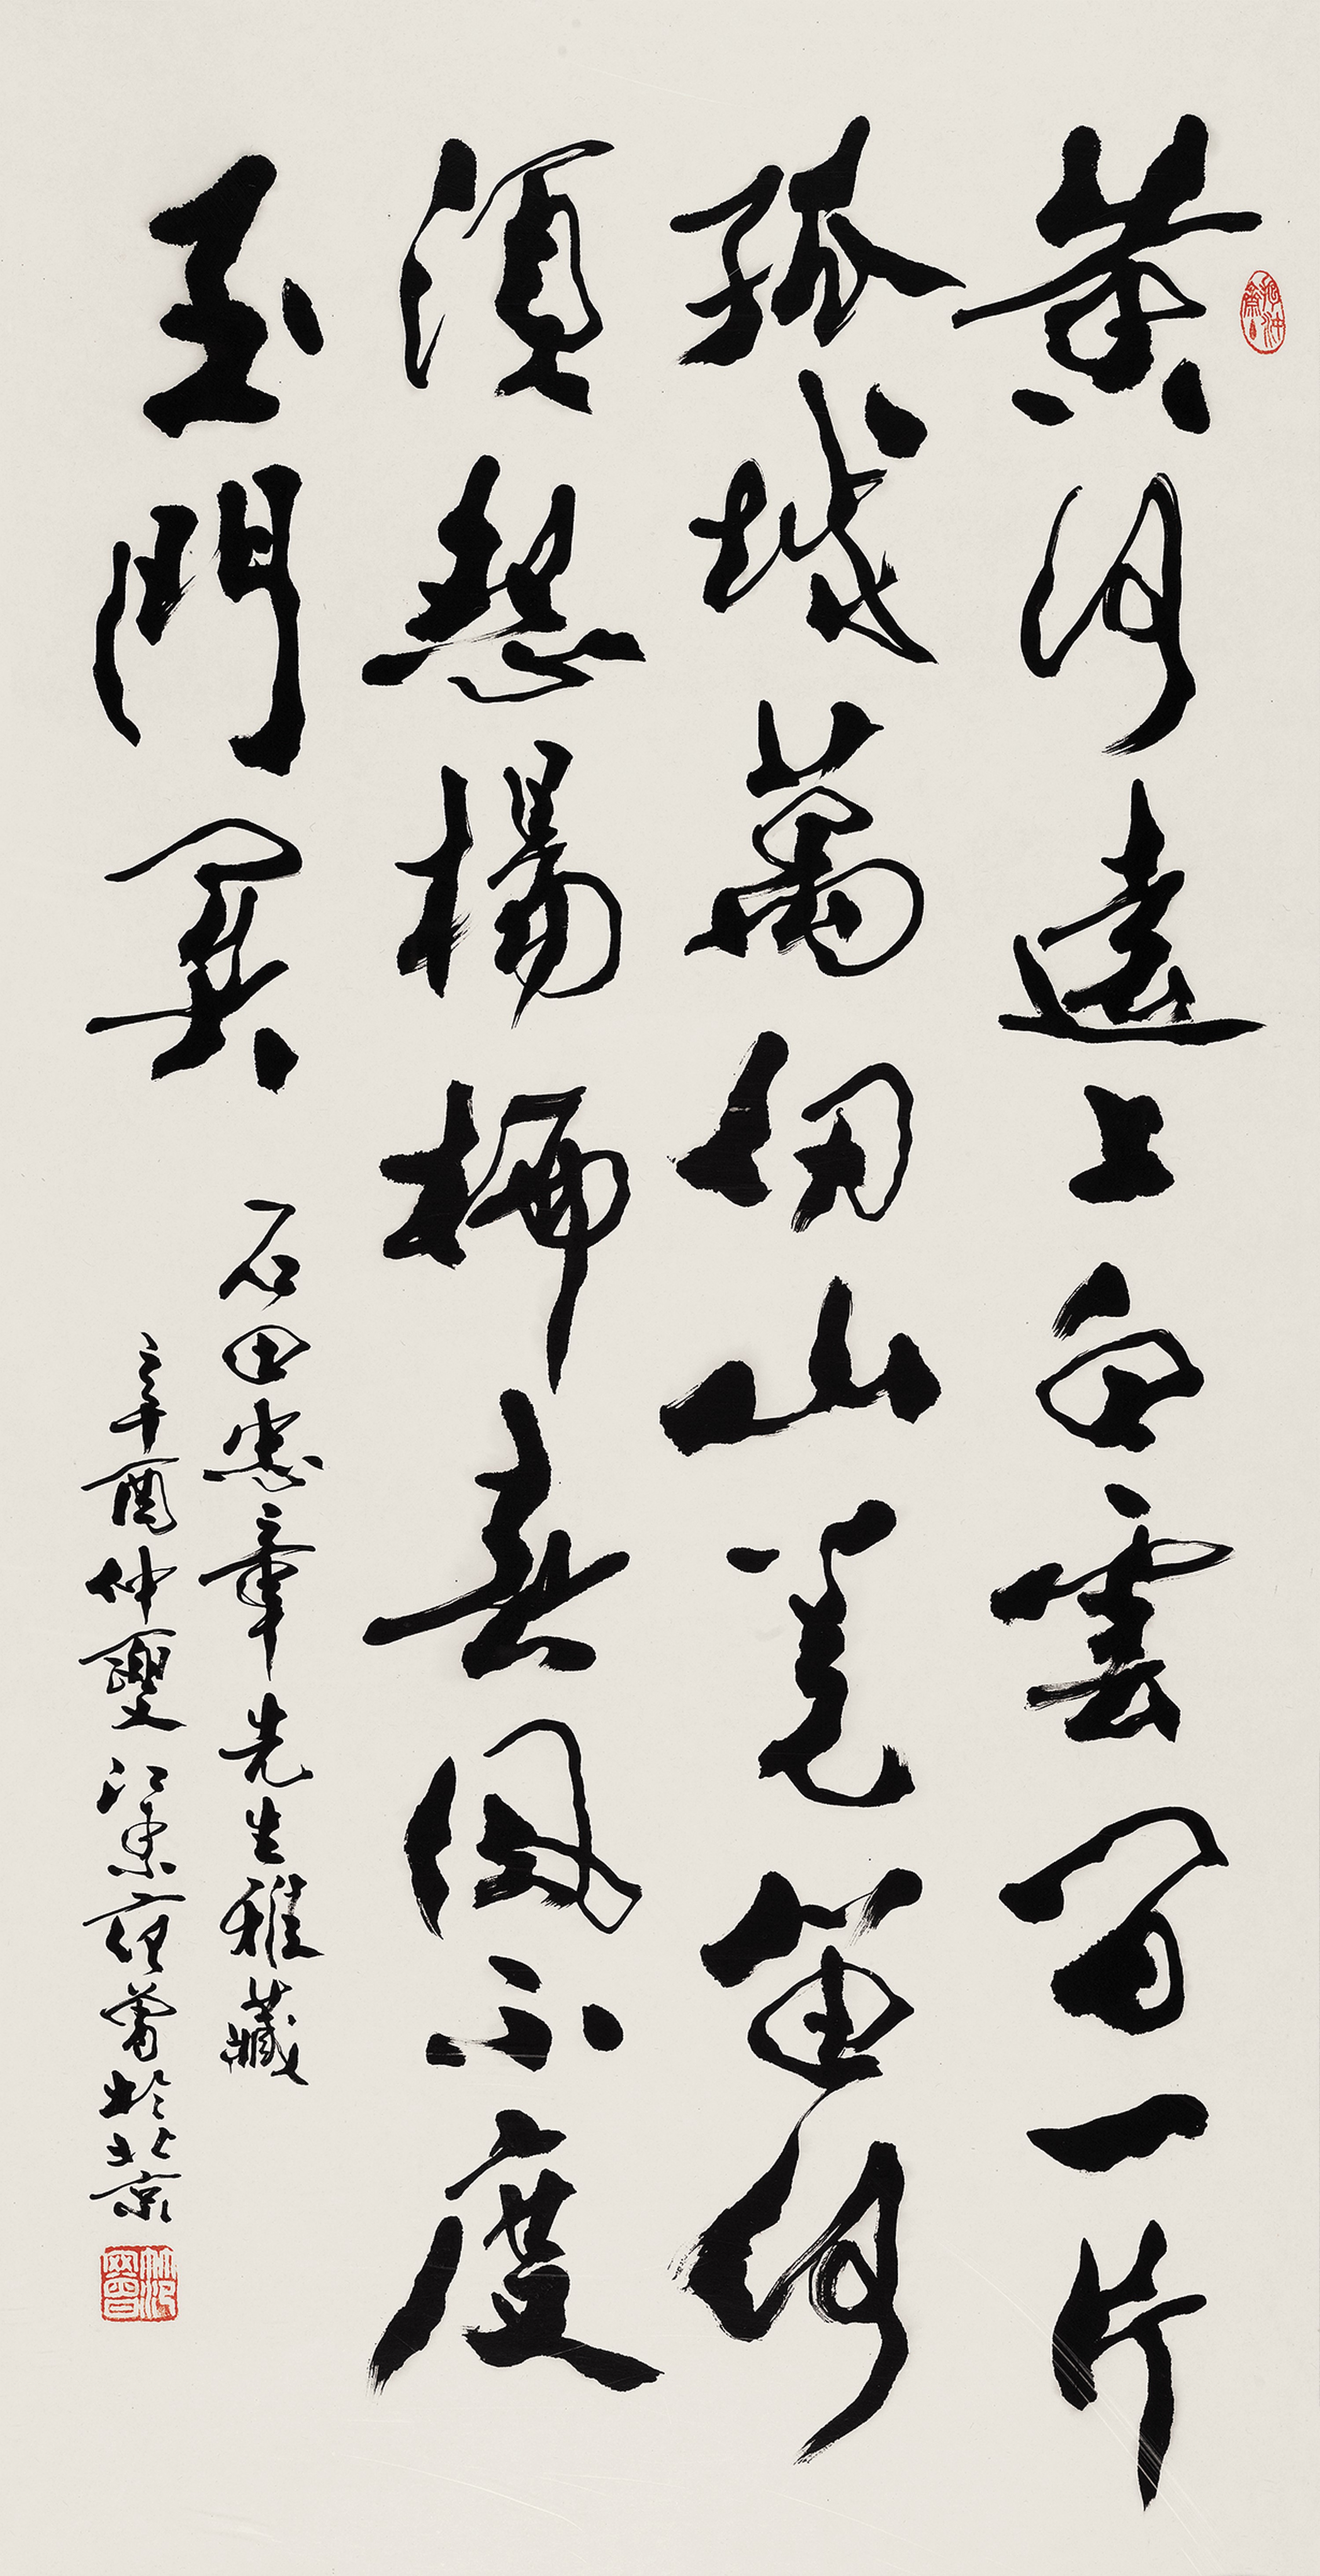 黄河遠上白雲間一片
孤城萬仞山羌笛何
須怨楊柳春風不度
玉門関
石田忠章先生雅藏
辛酉仲夏江東范曾於北京